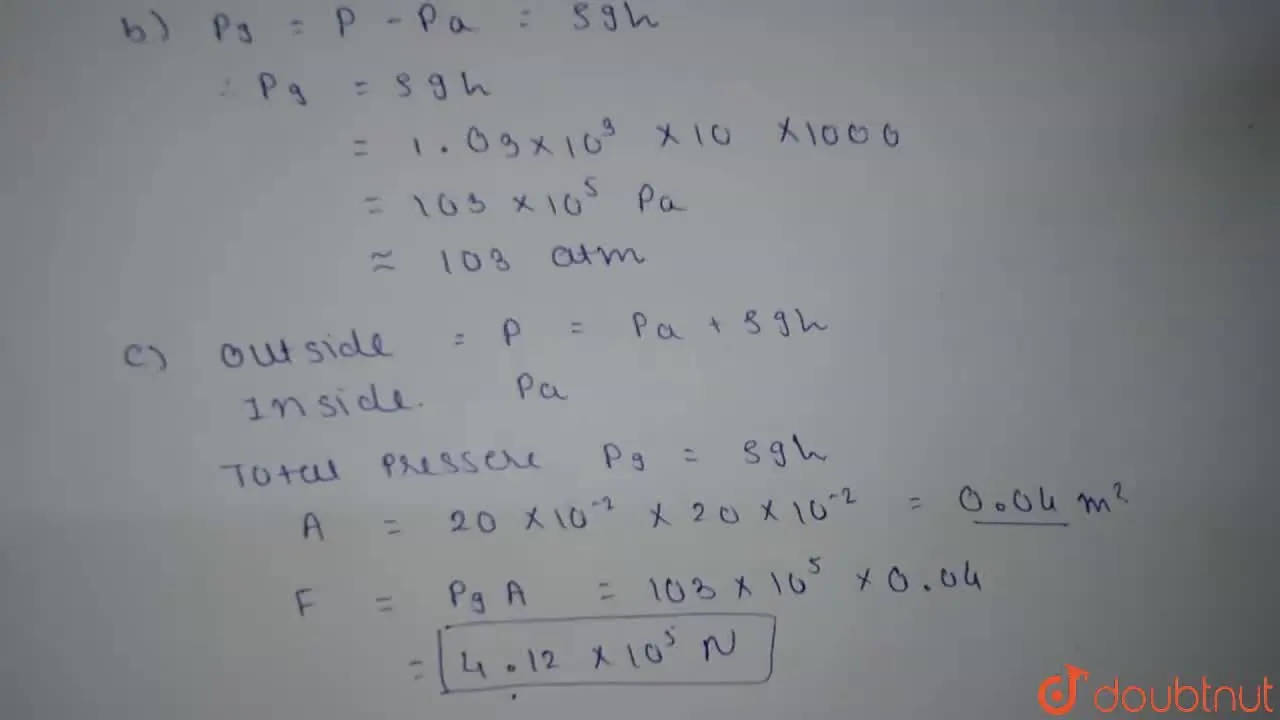 b) Pg = P - Pa = ρgh
∴ Pg = ρgh
= 1.03×10³ ×10 ×1000
= 103 ×10⁵ Pa
≈ 103 atm
c) Outside = P = Pa + ρgh
Inside. Pa
Total Pressere Pg = ρgh
A = 20 ×10⁻² × 20 ×10⁻² = 0.04 m²
F = PgA = 103 × 10⁵ × 0.04
= 4.12 × 10⁵ N
doubtnut